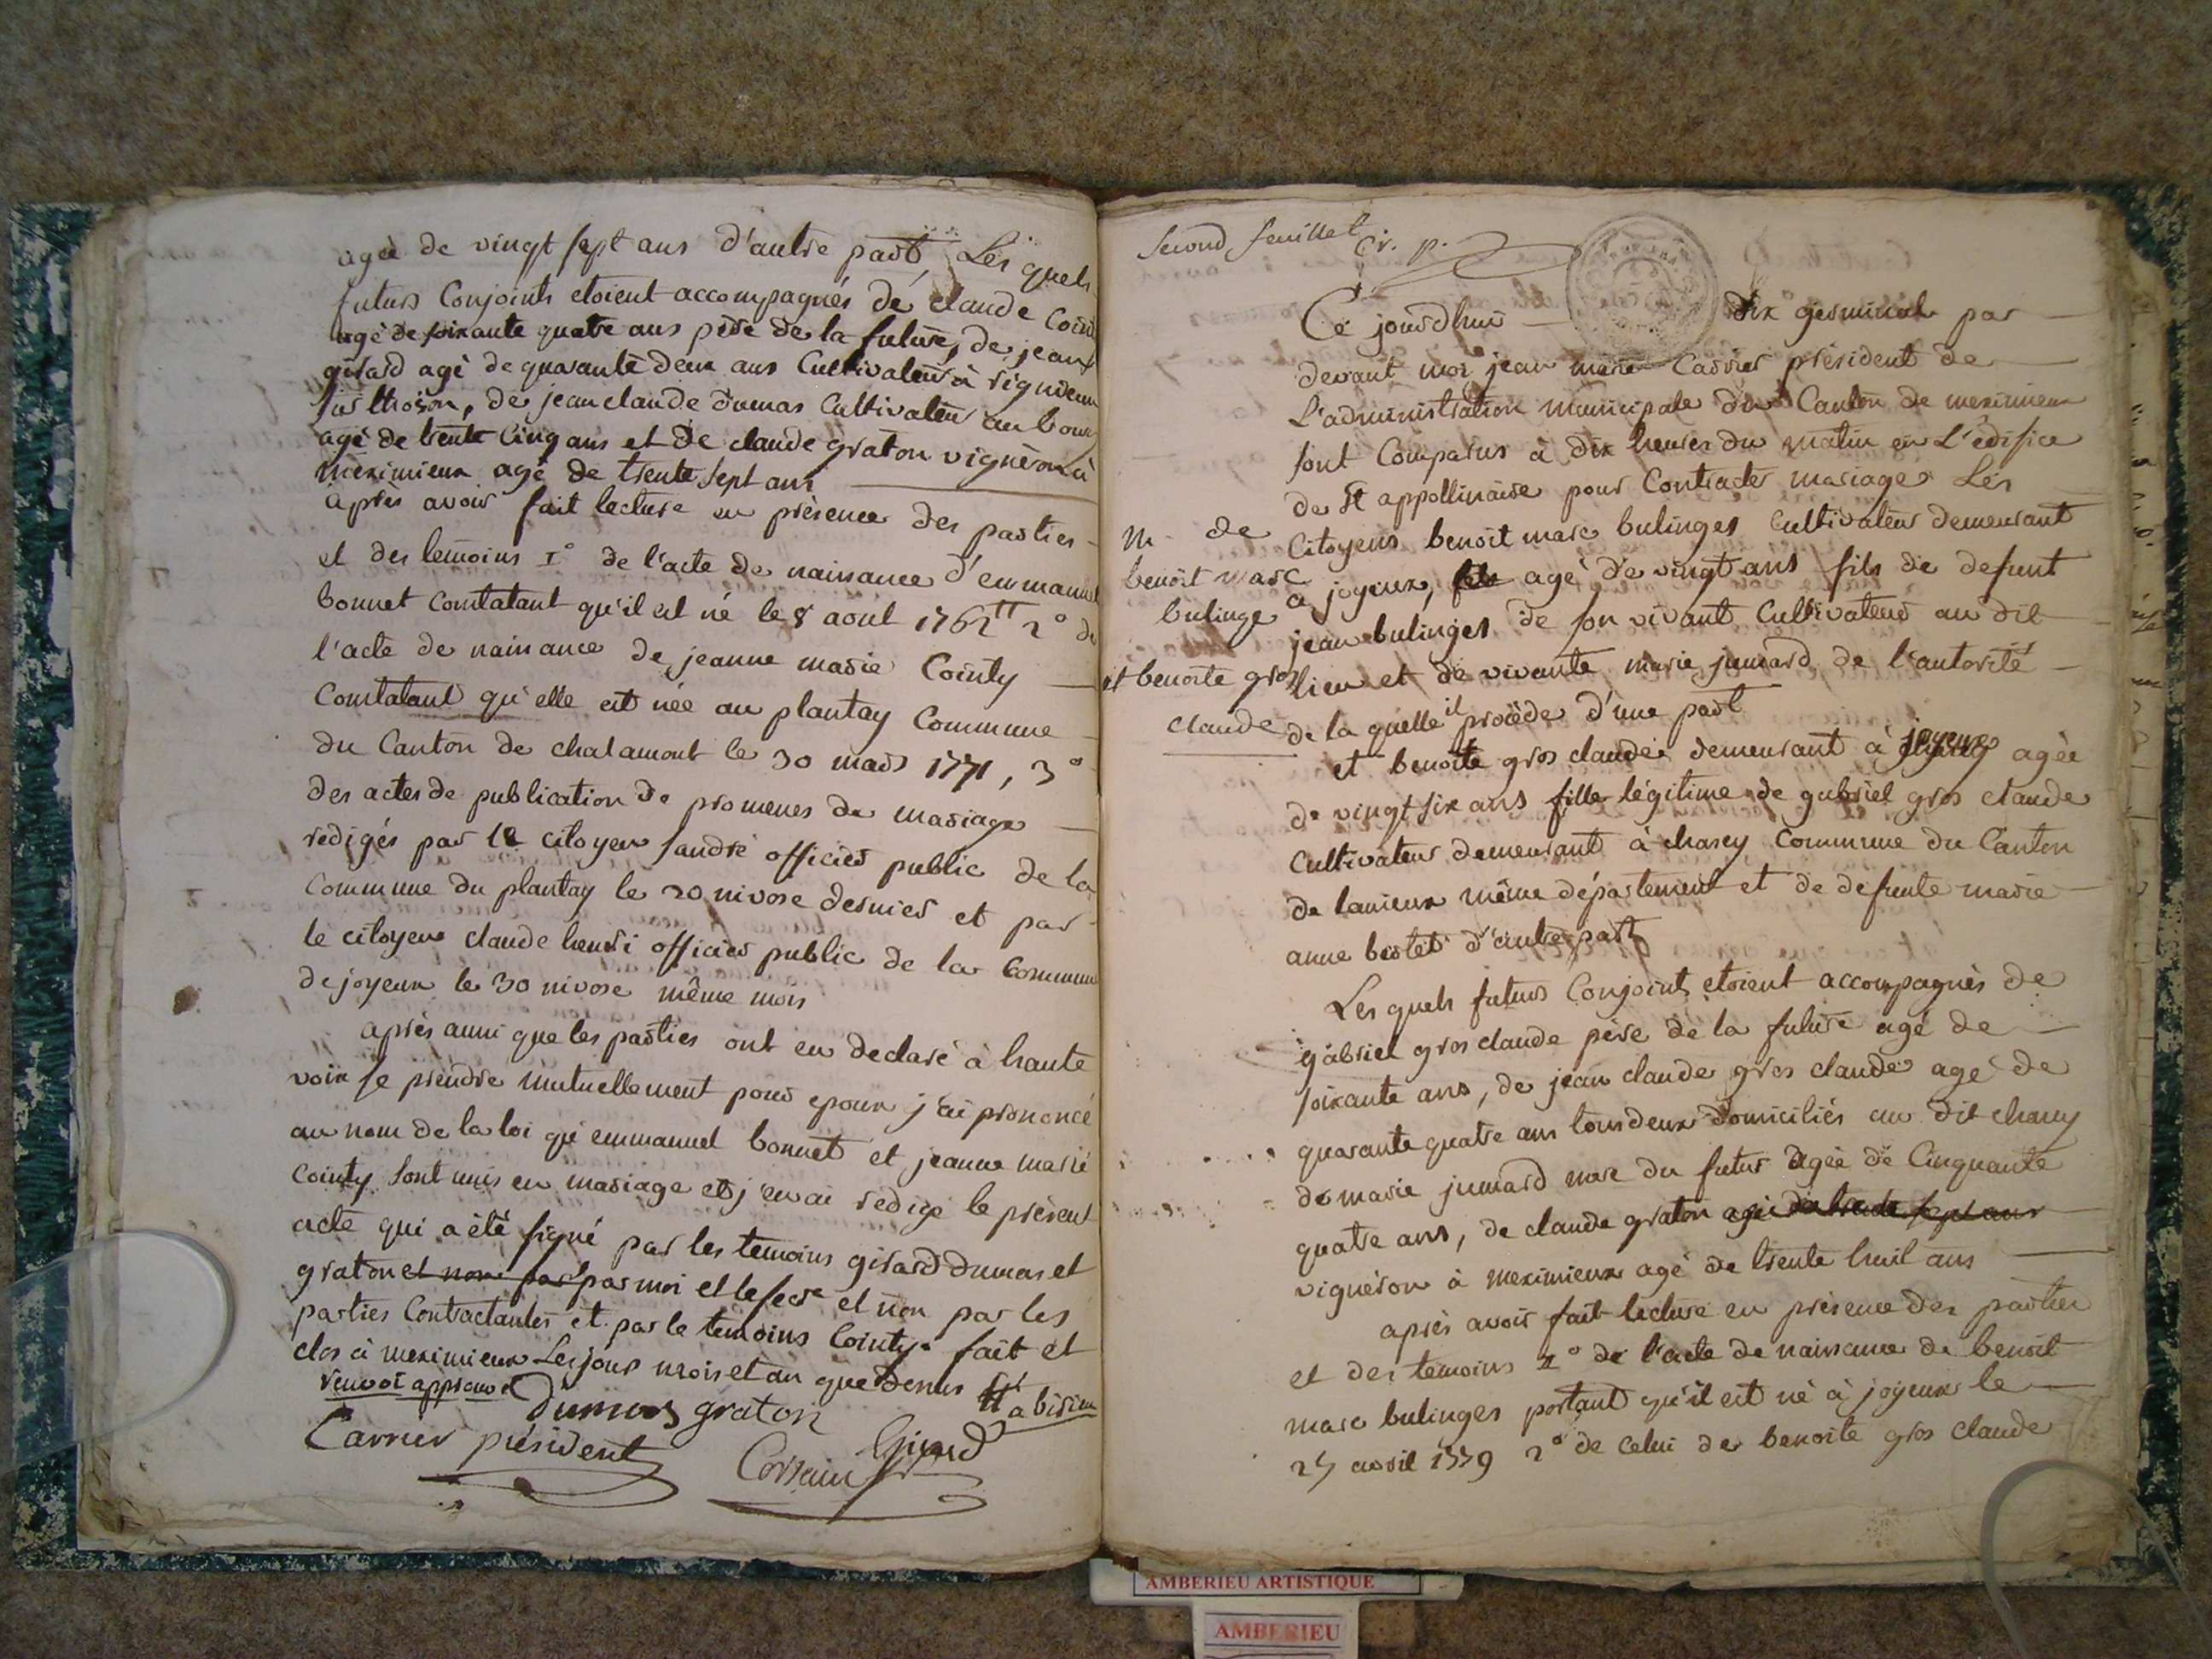 agée de vingt sept ans d'autre part, Les quels
futurs Conjoints etoient accompagnés de claude Coin
agé de soixante quatre ans pere de la future, de jean
girard agé de quarante deux ans Cultivateur à rignieux
de jean claude dumas Cultivateur au bour
agé de trente Cinq ans et de claude graton vigneron à
meximieux agé de trente sept ans
après avoir fait lecture en présence des parties
et des temoins 1° de l'acte de naissance d'emmanuel
bonnet Constatant qu'il est né le 8 aout 1762 2° de
l'acte de naissance de jeanne marie Cointy
Constatant qu'elle est née au plantay Commune
du Canton de chalamont le 30 mars 1771, 3°
des actes de publication de promesses de mariage
redigés par le citoyen sandre officier public de la
Commune du plantay le 20 nivose dernier et par
le citoyen claude henri officier public de la Commune
de joyeux le 30 nivose même mois
après aussi que les parties ont eu declaré à haute
voix se prendre mutuellement pour epoux j'ai prononcé
au nom de la loi qu'emmanuel bonnet et jeanne marie
Cointy sont unis en mariage et j'en ai redigé le présent
acte qui a été signé par les temoins girard dumas et
graton et non par par moi et le secre et non par les
parties Contractantes et par le temoins Cointy. fait et
clos à meximieux Les jour mois et an que dessus
renvoi approuvé
dumas graton
Carrier président
Girard
second feuillet
Ce jourdhui dix germinal par
devant moi jean marie Carrier président de
L'administration municipale du Canton de meximieux
sont Comparus à dix heures du matin en L'édifice
de St appollinaire pour Contracter mariage Les
Citoyens benoit marc bulinges Cultivateur demeurant
m. de
benoit marc
bulinge
et benoite gros
claude
à joyeux, fils agé de vingt ans fils de defunt
jean bulinges de son vivant Cultivateur au dit
lieu et de vivante marie jumard de l'autorité
de la quelle il procède d'une part
et benoite gros claude demeurant à joyeux agée
de vingt six ans fille légitime de gabriel gros claude
Cultivateur demeurant à charey Commune du Canton
de lanieux même département et de defunte marie
anne d'autre part
Les quels futurs Conjoints etoient accompagnés de
gabriel gros claude père de la future agé de
soixante ans, de jean claude gros claude agé de
quarante quatre ans tous deux domiciliés au dit charey
de marie jumard mere du futur agée de Cinquante
quatre ans, de claude graton agé de trente sept ans
vigneron à meximieux agé de trente huit ans
après avoir fait lecture en présence des parties
et des temoins 1° de l'acte de naissance de benoit
marc bulinges portant qu'il est né à joyeux le
avril 2° de celui de benoite gros claude
AMBERIEU ARTISTIQUE
AMBERIEU